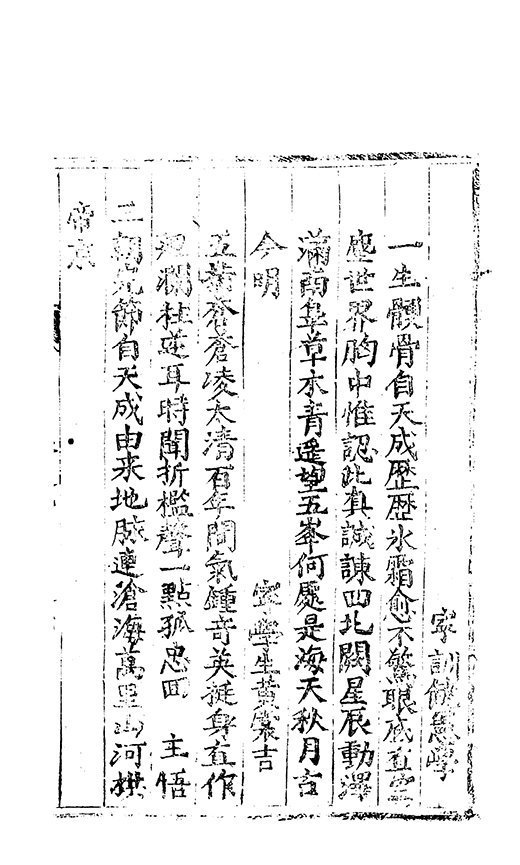 家訓
一生髏骨自天成歷歷氷霜愈不驚眼底直空
塵世界胸中惟認此真誠諫囬北闕星辰動澤
滿南阜草木青遥望五峯何處是海天秋月古
今明
學生黃
五蒼凌太清百年間氣鍾奇英挺身直作
瀾柱逆耳時聞折檻聲一點孤忠囬 主悟
二朝節自天成由来地脉連滄海萬里山河拱
帝京